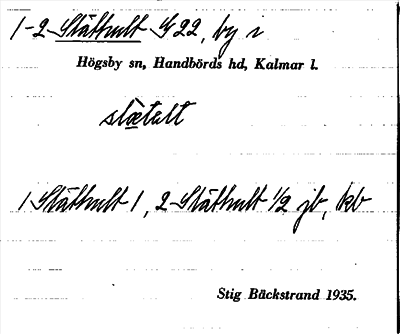 1-2 Slätthult G 22, by i
Högsby sn, Handbörds hd, Kalmar l.
slætelt
1 Slätthult 1, 2 Slätthult 1/2 jb, kb
Stig Bäckstrand 1935.